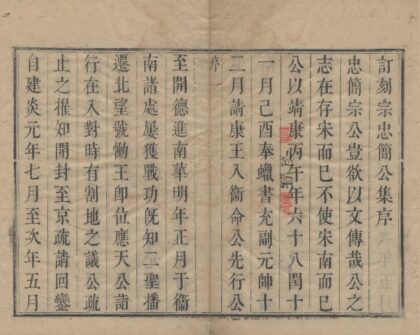 訂刻宗忠簡公集序
忠簡宗公豈欲以文傳哉公之
志在存宋而已不使宋南而已
公以靖康丙午年六十八閏十
一月己酉奉蠟書充副元帥十
二月請康王入衞命公先行公
至開德進南華明年正月于衞
南諸處屢獲戰功旣知二聖播
遷北望號慟王卽位應天公詣
行在入對時有割地之議公疏
止之擢知開封至京疏請回鑾
自建炎元年七月至次年五月